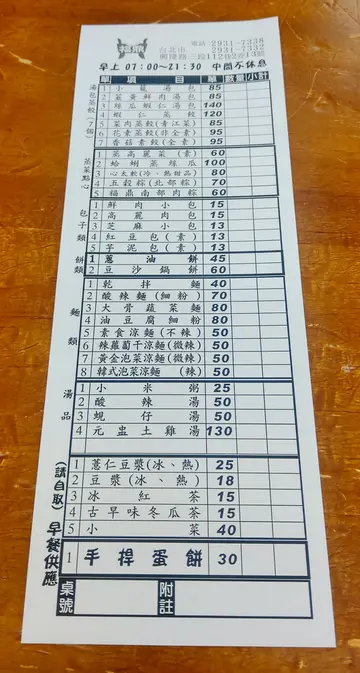 福鼎
電話 2931-7338
2931-7332
台北市
興隆路三段112巷2弄13號
早上 07:00~21:30 中間不休息
單 項目 單 數量 小計
湯包蒸餃(7個)
1 小籠湯包 85
2 韮黃鮮肉湯包 85
3 絲瓜蝦仁湯包 140
4 蝦仁蒸餃 120
5 菜肉蒸餃(青江菜) 85
6 花素蒸餃(非全素) 95
7 香菇素餃(全素) 95
蒸菜點心
1 蒸高麗菜(素) 60
2 蛤蜊蒸絲瓜 100
3 心太軟(冷、熱甜品) 80
4 五穀粽(北部粽) 70
5 福鼎南部肉粽 60
包子類
1 鮮肉小包 15
2 高麗肉包 15
3 芝麻小包 13
4 紅豆包(素) 13
5 芋泥包(素) 13
餅類
1 蔥油餅 45
2 豆沙鍋餅 60
麵類
1 乾拌麵 40
2 酸辣麵(細粉) 70
3 大骨蔬菜麵 80
4 油豆腐細粉 80
5 素食涼麵(不辣) 50
6 辣蘿蔔干涼麵(微辣) 50
7 黃金泡菜涼麵(微辣) 50
8 韓式泡菜涼麵(辣) 50
湯品
1 小米粥 25
2 酸辣湯 50
3 蜆仔湯 50
4 元盅土雞湯 130
(請自取)
1 薏仁豆漿(冰、熱) 25
2 豆漿(冰、熱) 18
3 冰紅茶 15
4 古早味冬瓜茶 15
5 小菜 40
早餐供應
1 手捍蛋餅 30
桌號
附註